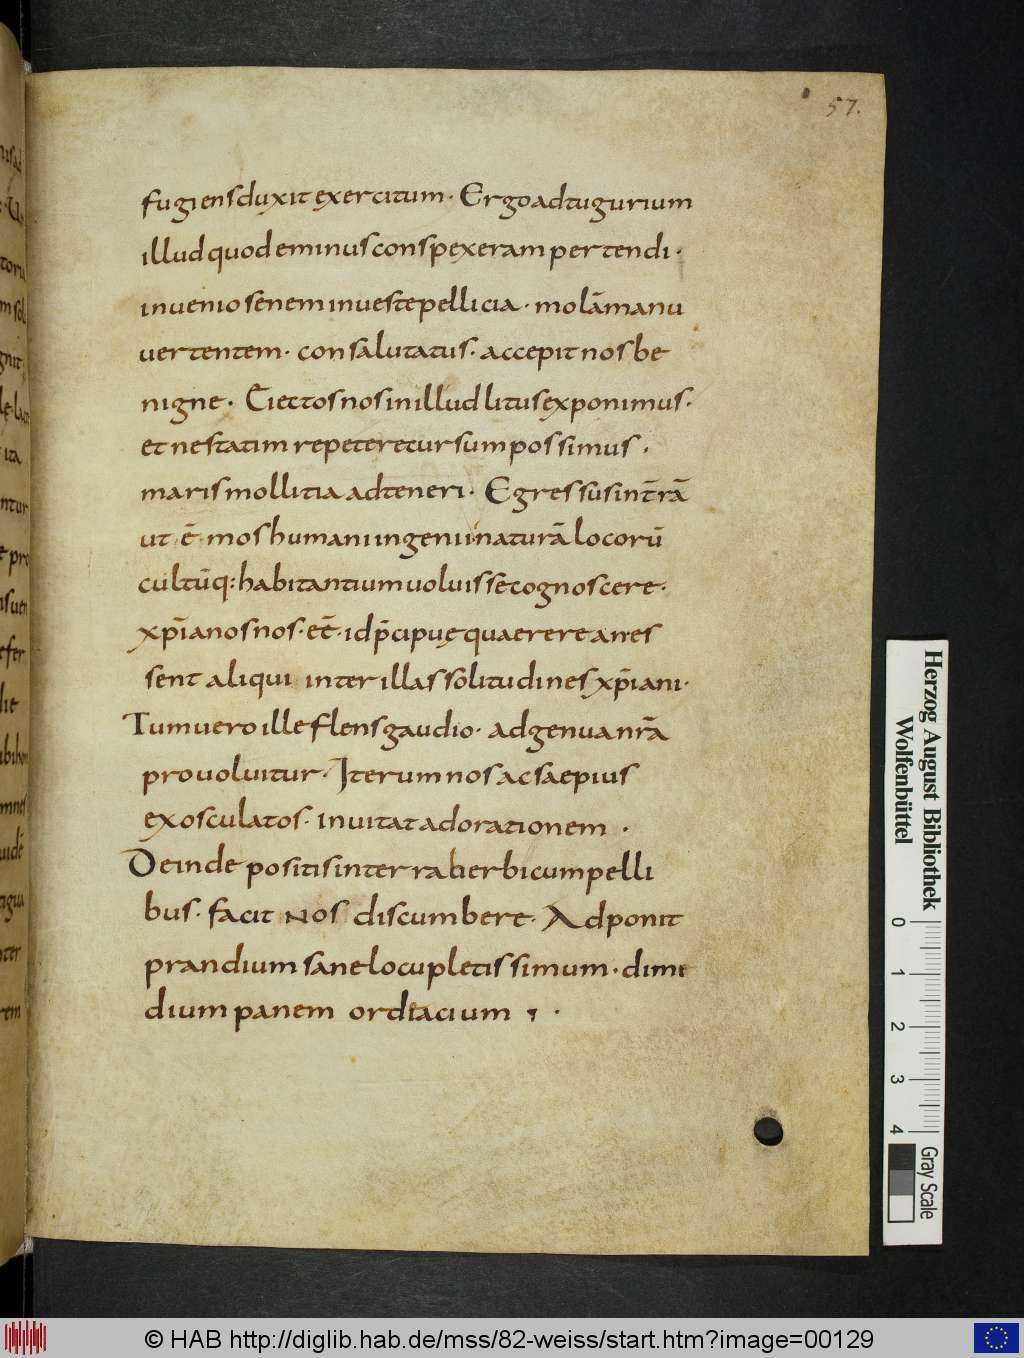 57.
fugiens duxit exercitum · Ergo ad tugurium
illud quod eminus conspexeram pertendi ·
invenio senem in veste pellicia · molā manu
vertentem · consalutatus · accepit nos be
nigne · Eiectos nos in illud litus exponimus ·
et ne statim repeteretur sum possimus ·
maris mollitia adteneri · Egressus in t̄rā
ut ē mos humani ingenii naturā locorū
cultūq: habitantium voluisse cognoscere ·
xp̄ianos nos · eē · id p̄cipuę quaerere an es
sent aliqui inter illas solitudines xp̄iani ·
Tum vero ille flens gaudio · ad genua nr̄a
provolvitur · Iterum nos ac saepius
exosculatos · invitat ad orationem ·
Deinde positis in terra herbicum pelli
bus · facit nos discumbere · Adponit
prandium sane locupletissimum · dimi
dium panem ordiacium ·
Herzog August Bibliothek
Wolfenbüttel
0 1 2 3 4
Gray Scale
© HAB http://diglib.hab.de/mss/82-weiss/start.htm?image=00129